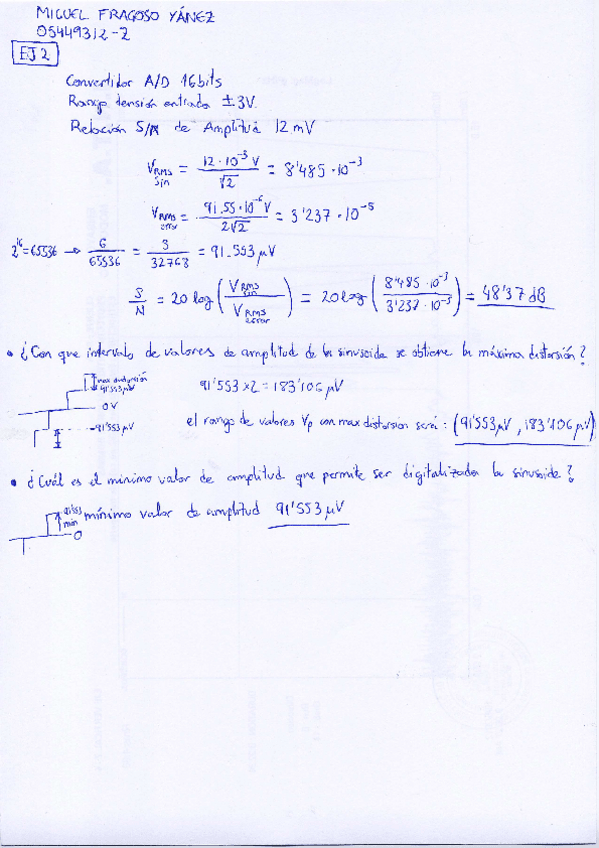 MIGUEL FRAGOSO YÁNEZ
05449312-2
EJ 2
Convertidor A/D 16 bits
Rango tensión entrada ± 3V.
Relación S/N de Amplitud 12 mV
V RMS sin = 12·10⁻³ V / √2 = 8'485·10⁻³
V RMS error = 91.55·10⁻⁶ V / 2√2 = 3'237·10⁻⁵
2¹⁶=65536 → 6/65536 = 3/32768 = 91.553 μV
S/N = 20 log (V RMS sin / V RMS error) = 20 log (8'485·10⁻³ / 3'237·10⁻⁵) = 48'37 dB
• ¿Con que intervalo de valores de amplitud de la sinusoide se obtiene la máxima distorsión?
max distorsión
91'553 μV
0V
-91'553 μV
91'553 x 2 = 183'106 μV
el rango de valores Vp con max distorsion será: (91'553 μV, 183'106 μV)
• ¿Cuál es el minimo valor de amplitud que permite ser digitalizada la sinusoide?
min
0
mínimo valor de amplitud 91'553 μV